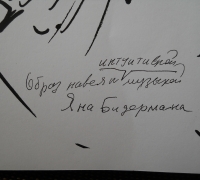 интуитивной
Образ навеян музыкой
Яна Бидермана